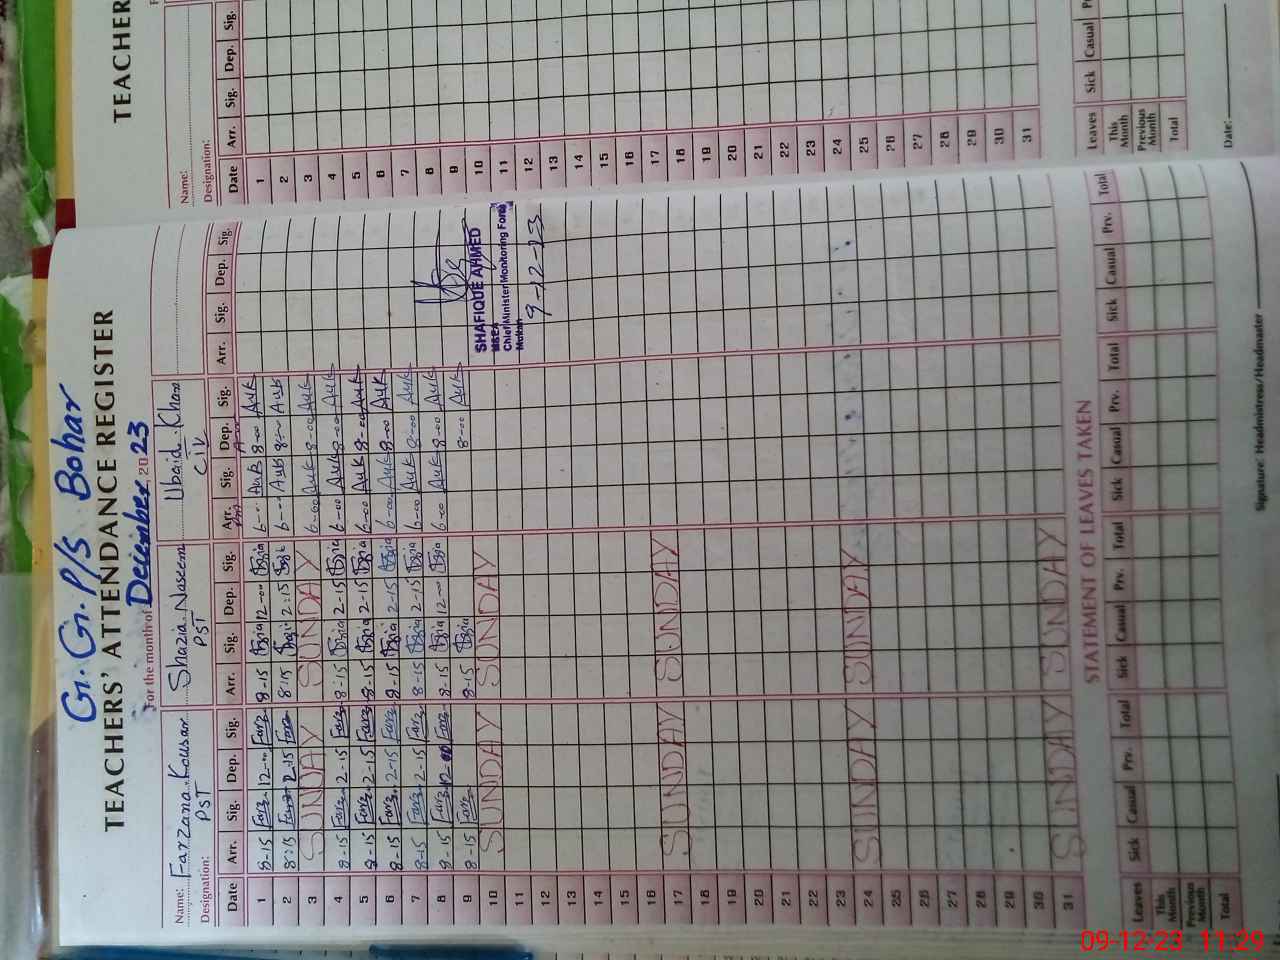 G. G. P/S Bohar
TEACHERS' ATTENDANCE REGISTER
For the month of December, 2023
Name: Farzana Kousar Shazia Naseem Ubaid Khan
Designation: PST PST CIV
Date Arr. Sig. Dep. Sig. Arr. Sig. Dep. Sig. Arr. Sig. Dep. Sig. Arr. Sig. Dep. Sig.
1 8-15 Farz 12-00 Farz 8-15 12-00 6-00 8-00
2 8:15 Farz 2-15 Farz 8:15 2:15 6-00 8-00
3 SUNDAY SUNDAY 6-00 8-00
4 8-15 Farz 2-15 Farz 8-15 2-15 6-00 8-00
5 8-15 Farz 2-15 Farz 8-15 2-15 6-00 8-00
6 8-15 Farz 2-15 Farz 8-15 2-15 6-00 8-00
7 8-15 Farz 2-15 Farz 8-15 2-15 6-00 8-00
8 8-15 Farz 12-00 Farz 8-15 12-00 6-00 8-00
9 8-15 Farz 8-15 8-00
10 SUNDAY SUNDAY SHAFIQUE AHMED
11 MEA
Chief Minister Monitoring Force
Multan
12 9-12-23
13
14
15
16
17 SUNDAY SUNDAY
18
19
20
21
22
23
24 SUNDAY SUNDAY
25
26
27
28
29
30
31 SUNDAY SUNDAY
STATEMENT OF LEAVES TAKEN
Leaves Sick Casual Prv. Total Sick Casual Prv. Total Sick Casual Prv. Total Sick Casual Prv. Total
This Month
Previous Month
Total
Signature: Headmistress/Headmaster
TEACHER
Name:
Designation:
Date Arr. Sig. Dep. Sig.
1
2
3
4
5
6
7
8
9
10
11
12
13
14
15
16
17
18
19
20
21
22
23
24
25
26
27
28
29
30
31
Leaves Sick Casual
This Month
Previous Month
Total
Date:
09-12-23 11:29